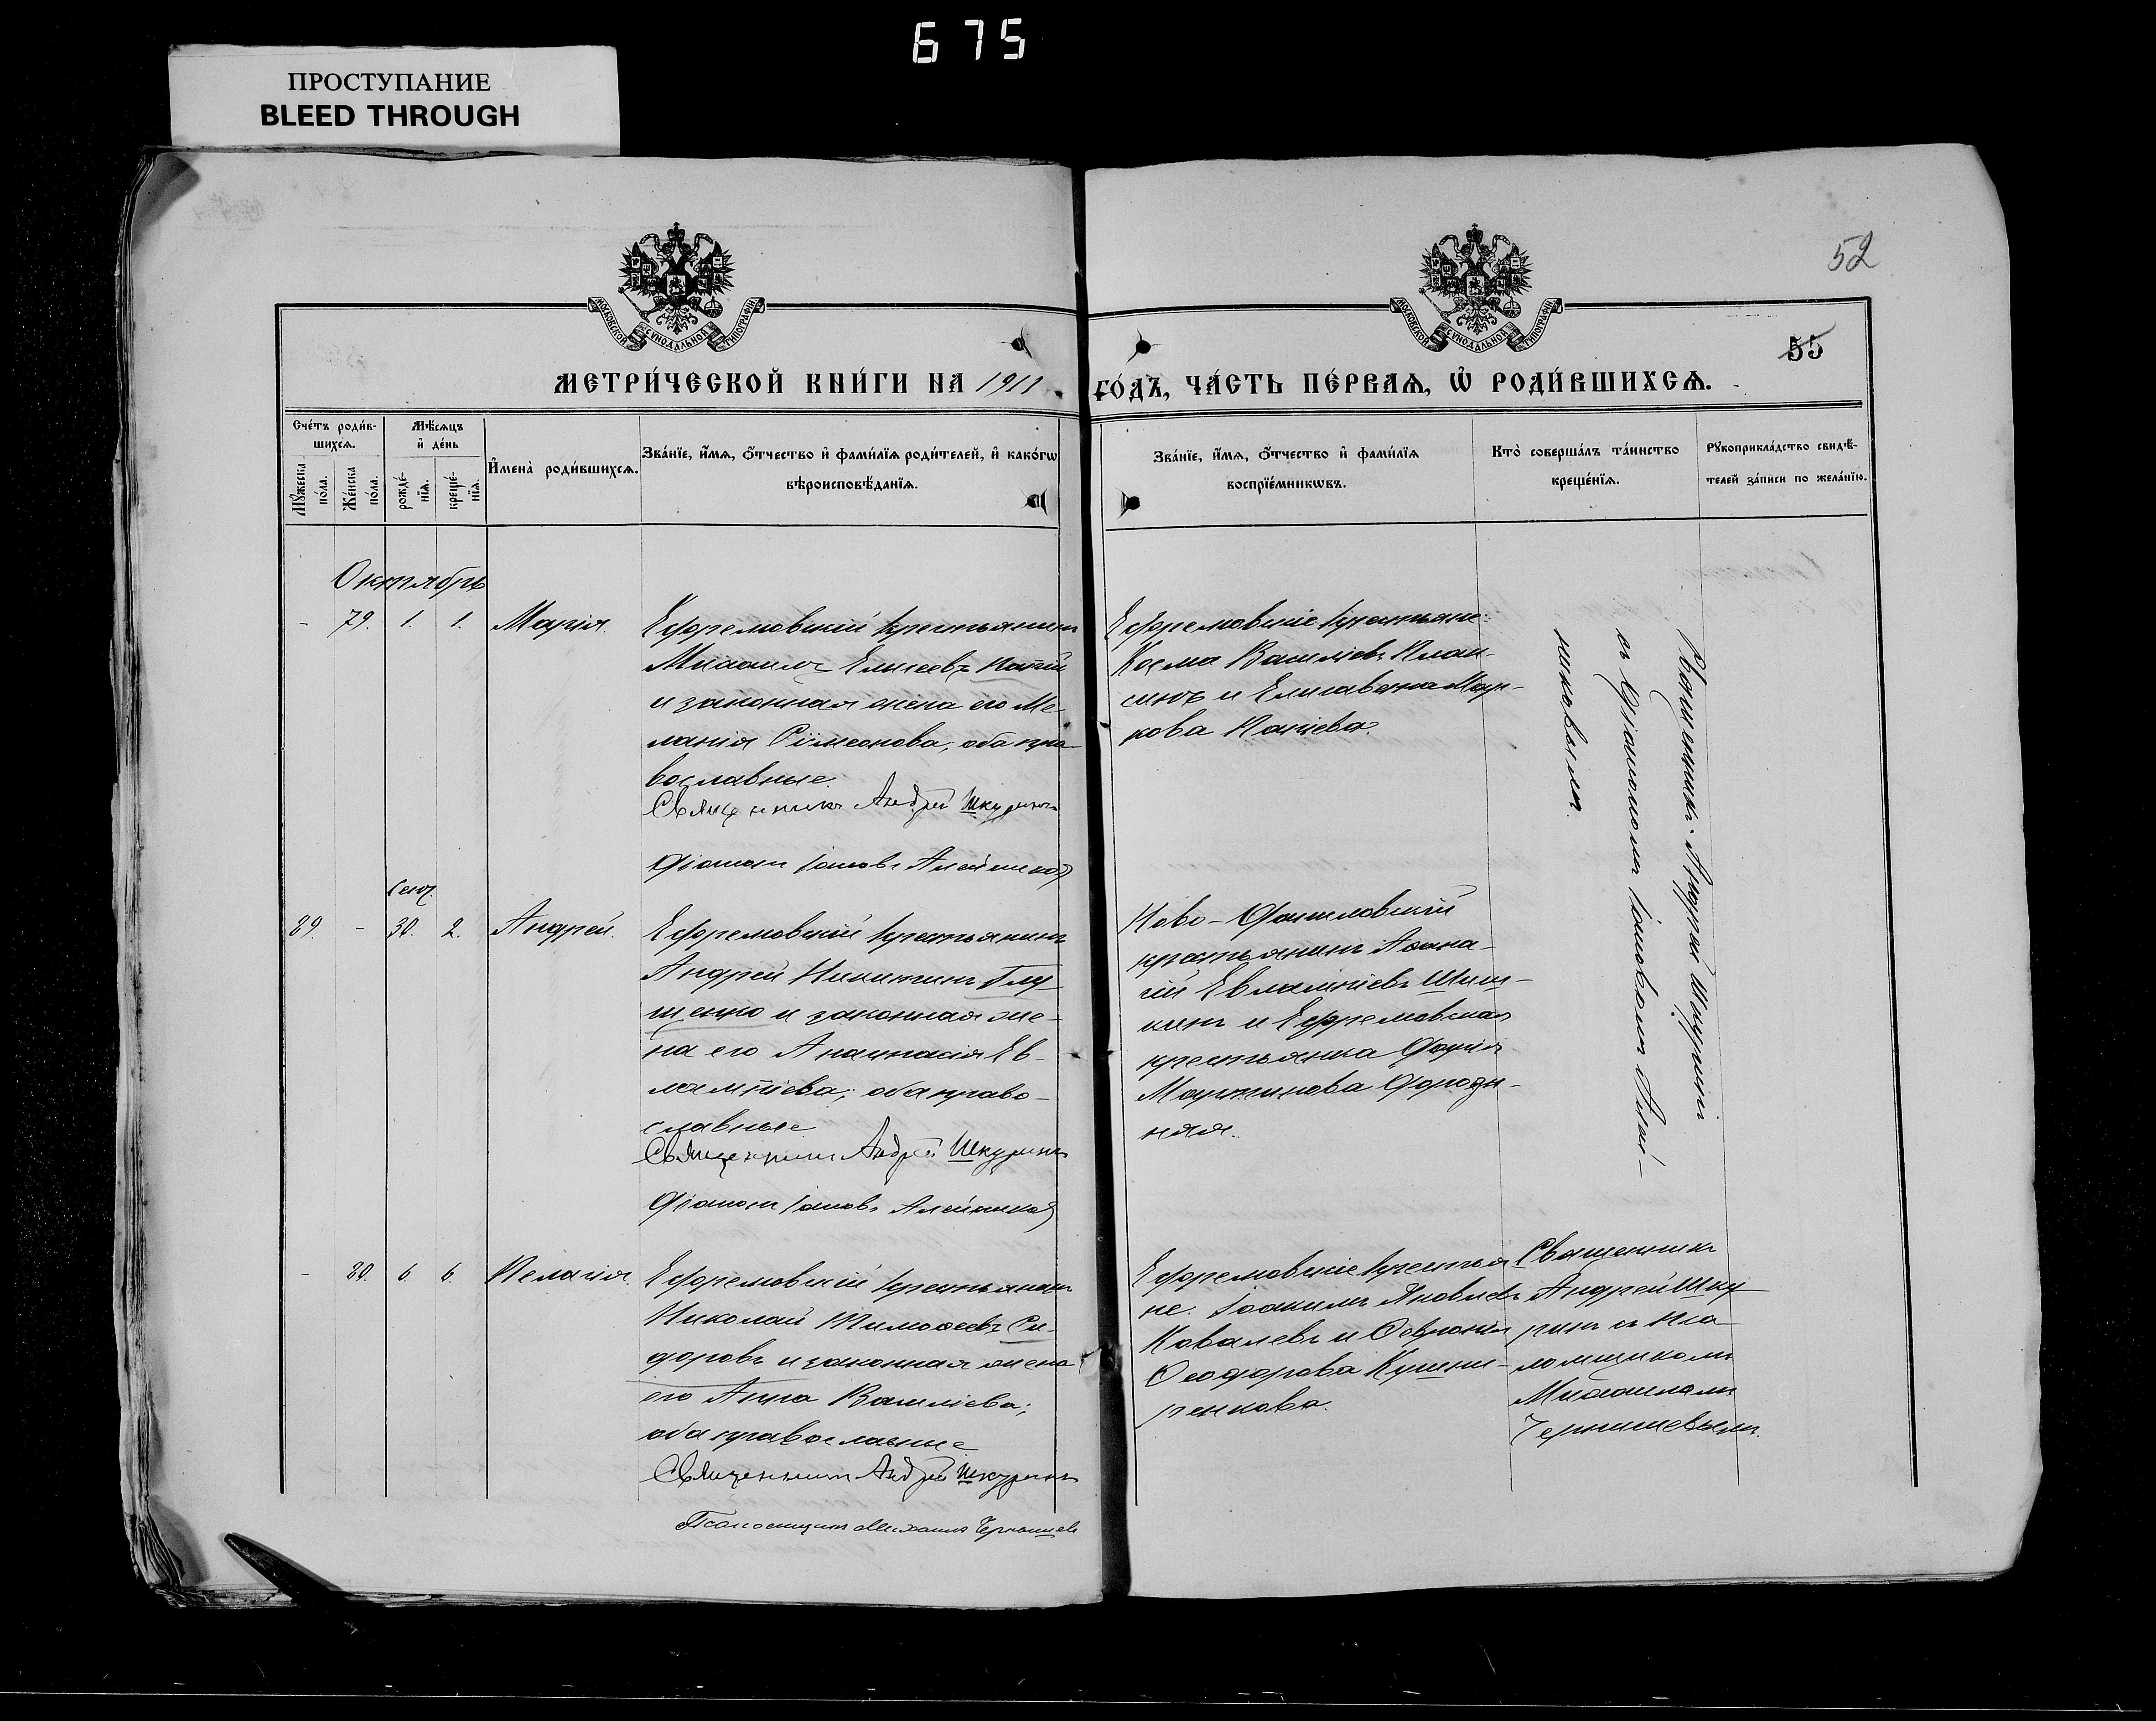 675
ПРОСТУПАНИЕ
BLEED THROUGH
52
МОСКОВСКОЙ СѴНОДАЛЬНОЙ ТИПОГРАФІИ
МОСКОВСКОЙ СѴНОДАЛЬНОЙ ТИПОГРАФІИ
55
МЕТРИ́ЧЕСКОЙ КНИ́ГИ НА 1911 ГО́ДЪ, ЧА́СТЬ ПЕ́РВАѦ, Ѡ҆ РОДИ́ВШИХСѦ.
Счетъ роди́в-
шихсѧ.
Мѣ́сѧцъ
и҆ де́нь
Мꙋ́жеска
по́ла.
Же́нска
по́ла.
рожде́-
нїѧ.
креще́-
нїѧ.
И҆мена̀ роди́вшихсѧ.
Зва́нїе, и҆́мѧ, ѻ҆́тчество и҆ фами́лїѧ роди́телей, и҆ како́гѡ
вѣроисповѣ́данїѧ.
Зва́нїе, и҆́мѧ, ѻ҆́тчество и҆ фами́лїѧ
воспрїе́мникѡвъ.
Кто̀ соверша́лъ та́инство
креще́нїѧ.
Рꙋкоприкла́дство свидѣ́-
телей за́писи по жела́нїю.
Октябрь
- 79. 1. 1. Марія.
Ефремовскій крестьянинъ
Михаилъ Елисеевъ
и законная жена его Ме-
ланія Симеонова, оба пра-
вославные.
Священникъ Андрей Шкуринъ
Діаконъ Іаковъ Алейников
Ефремовскіе крестьяне:
Косма Василіевъ
и Елисавета Мар-
кова
Священникъ Андрей Шкуринъ
съ Діакономъ Іаковомъ Алей-
никовымъ.
Сент.
89. - 30. 2. Андрей.
Ефремовскій крестьянинъ
Андрей Никитинъ Глу-
щенко и законная же-
на его Анастасія Ев-
лампіева; оба право-
славные
Священникъ Андрей Шкуринъ
Діаконъ Іаковъ Алейников
Ново-
крестьянинъ Афана-
сій Евлампіевъ Шиш-
кинъ и Ефремовская
крестьянка Дарія
Мартинова
- 80. 6. 6. Пелагія.
Ефремовскій крестьянинъ
Николай Тимофеевъ Си-
доровъ и законная жена
его Анна Василіева;
оба православные
Священникъ Андрей Шкуринъ
Псаломщикъ Михаилъ Чернышев
Ефремовскіе крестья
не: Іоакимъ Яковлевъ
Ковалевъ и Ѳеврония
Ѳеодорова Кушни-
ренкова.
Священникъ
Андрей Шку
ринъ съ Пса
ломщикомъ
Михаиломъ
Чернышевымъ.